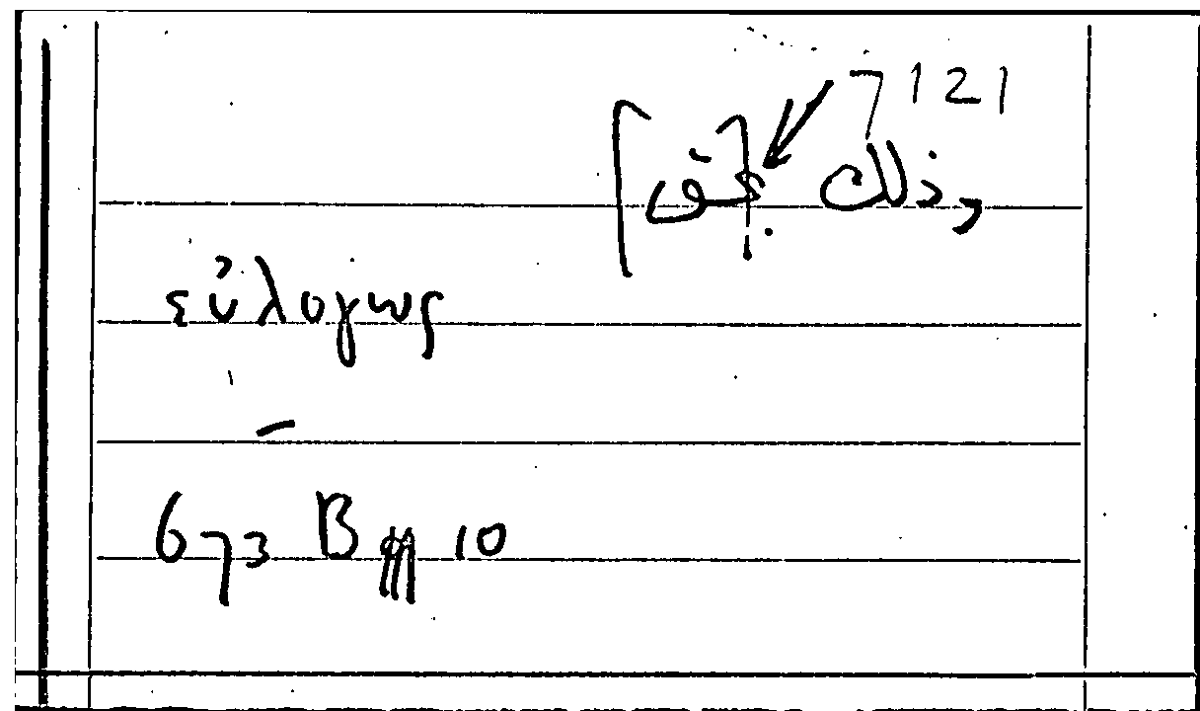 7121
وذلك ب[حق]
εὐλογως
—
673 B 10